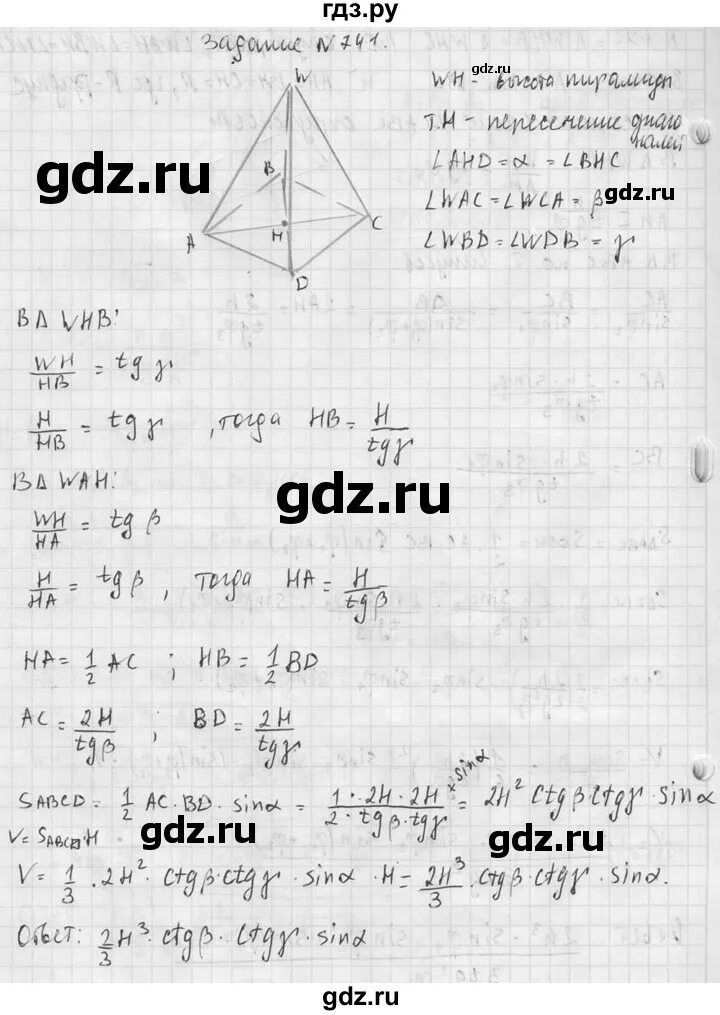 гдз.ру
Задание N 741.
gdz.ru
W
B
A
H
C
D
WH - высота пирамиды
Т.Н - пересечение диаго
налей
∠AHD = α = ∠BHC
∠WAC = ∠WCA = β
∠WBD = ∠WDB = γ
gdz.ru
gdz.ru
В Δ WHB:
WH/HB = tg γ
H/HB = tg γ , тогда HB = H/tgγ
gdz.ru
В Δ WAH:
WH/HA = tg β
H/HA = tg β , тогда HA = H/tgβ
gdz.ru
gdz.ru
HA = 1/2 AC ; HB = 1/2 BD
AC = 2H/tgβ ; BD = 2H/tgγ
gdz.ru
SABCD = 1/2 AC · BD · sinα = 1 · 2H · 2H/2 · tgβ · tgγ × sinα = 2H² ctgβ · ctgγ · sinα
V = SABCD · H
gdz.ru
gdz.ru
V = 1/3 · 2H² · ctgβ · ctgγ · sinα · H = 2H³/3 · ctgβ · ctgγ · sinα.
Ответ: 2/3 H³ · ctgβ · ctgγ · sinα
gdz.ru
gdz.ru